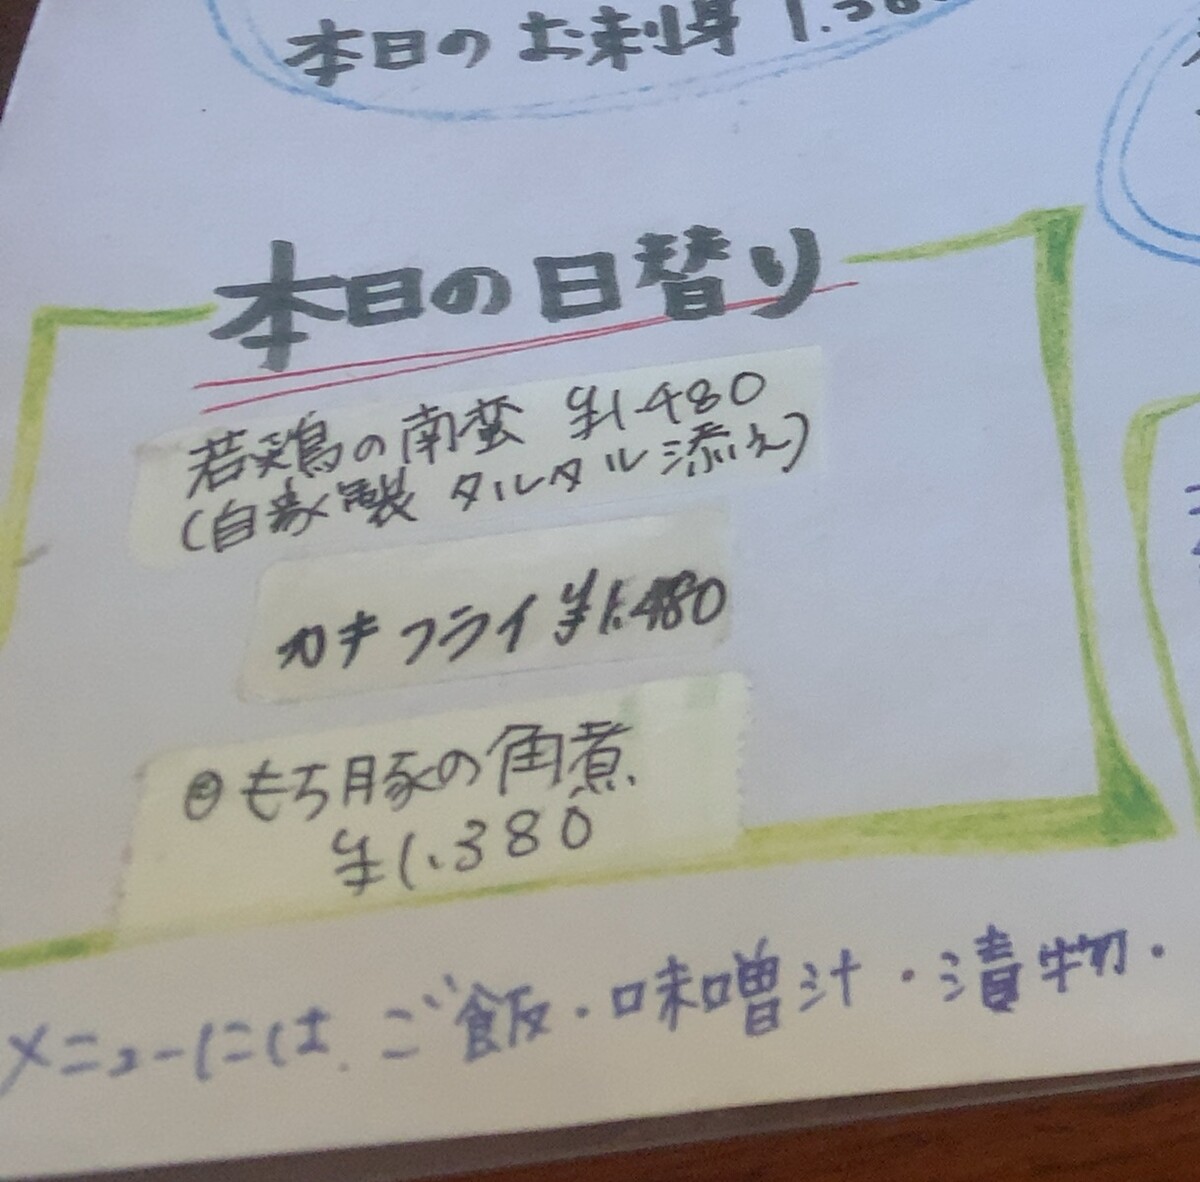 本日のお刺身
本日の日替り
若鶏の南蛮 ¥1.480
(自家製 タルタル添え)
カキフライ ¥1.480
もち豚の角煮
¥1.380
メニューには、ご飯・味噌汁・漬物・